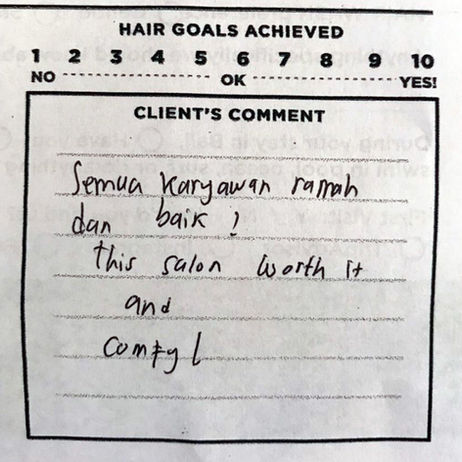 HAIR GOALS ACHIEVED
1 2 3 4 5 6 7 8 9 10
NO OK YES!
CLIENT'S COMMENT
Semua karyawan ramah
dan baik !
This salon worth it
and
comfy !